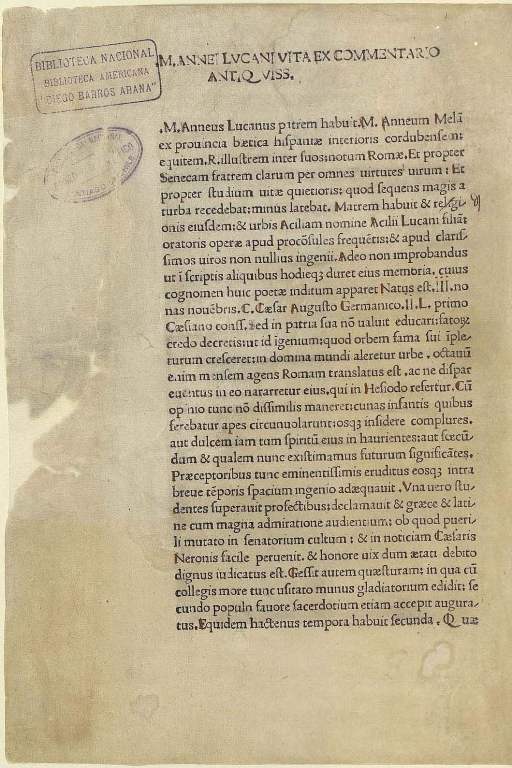 BIBLIOTECA NACIONAL
BIBLIOTECA AMERICANA
"DIEGO BARROS ARANA"
.M. ANNEI LVCANI VITA EX COMMENTARIO
ANTIQVISS.
.M. Anneus Lucanus patrem habuit .M. Anneum Melã
ex prouincia bætica hispaniæ interioris cordubensem:
equitem .R. illustrem inter suos: notum Romæ. Et propter
Senecam fratrem clarum per omnes uirtutes uirum: Et
propter studium uitæ quietioris: quod sequens magis a
turba recedebat: minus latebat. Matrem habuit & religi-
onis eiusdem: & urbis Aciliam nomine Acilii Lucani filiã:
oratoris operæ apud procõsules frequẽtis: & apud claris-
simos uiros non nullius ingenii. Adeo non improbandus
ut ĩ scriptis aliquibus hodieq; duret eius memoria, cuius
cognomen huic poetæ inditum apparet Natus est .III. no
nas nouẽbris. C. Cæsar Augusto Germanico .II. L. primo
Cæsiano conss. Sed in patria sua nõ ualuit educari: fatoq;
credo decretis: ut id igenium: quod orbem fama sui ĩple-
turum cresceret: in domina mundi aleretur urbe. octauũ
enim mensem agens Romam translatus est. ac ne dispar
euentus in eo narraretur eius, qui in Hesiodo refertur. Cũ
opinio tunc nõ dissimilis maneret: cunas infantis quibus
ferebatur apes circunuolarunt: osq; insidere complures.
aut dulcem iam tum spiritũ eius in haurientes: aut fœcũ-
dum & qualem nunc existimamus futurum significãtes.
Præceptoribus tunc eminentissimis eruditus eosq; intra
breue tẽporis spacium ingenio adæquauit. Vna uero stu-
dentes superauit profectibus: declamauit & græce & lati-
ne cum magna admiratione audientium: ob quod pueri-
li mutato in senatorium cultum: & in noticiam Cæsaris
Neronis facile peruenit. & honore uix dum ætati debito
dignus iudicatus est. Gessit autem quæsturam: in qua cũ
collegis more tunc usitato munus gladiatorium edidit: se
cundo populi fauore sacerdotium etiam accepit augura-
tus. Equidem hactenus tempora habuit secunda. Quæ